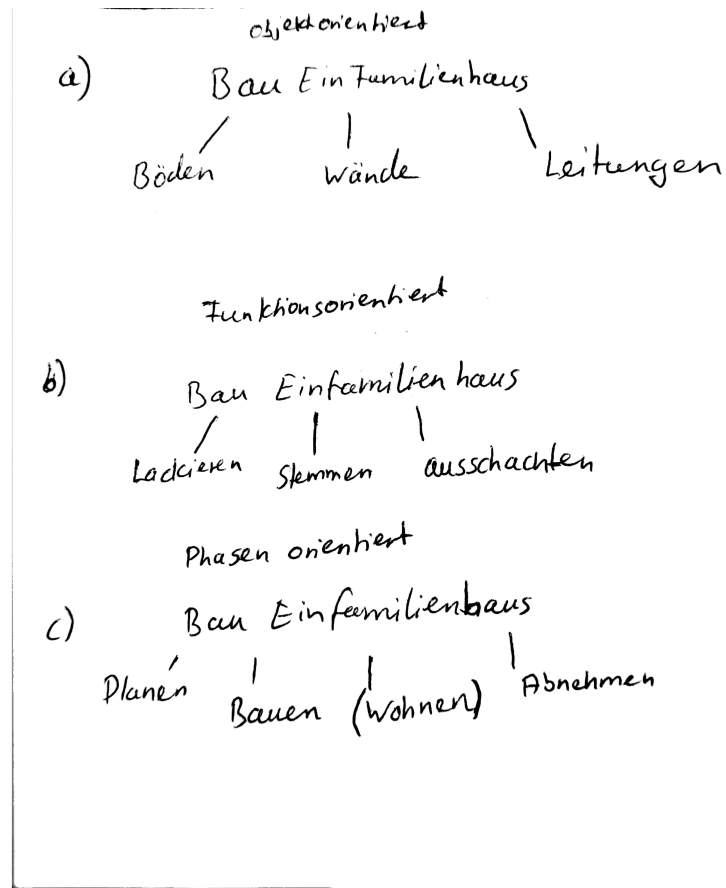 objektorientiert
a) Bau EinFamilienhaus
Böden Wände Leitungen
Funktionsorientiert
b) Bau Einfamilienhaus
Lackieren Stemmen ausschachten
Phasen orientiert
c) Bau Einfamilienhaus
Planen Bauen (Wohnen) Abnehmen